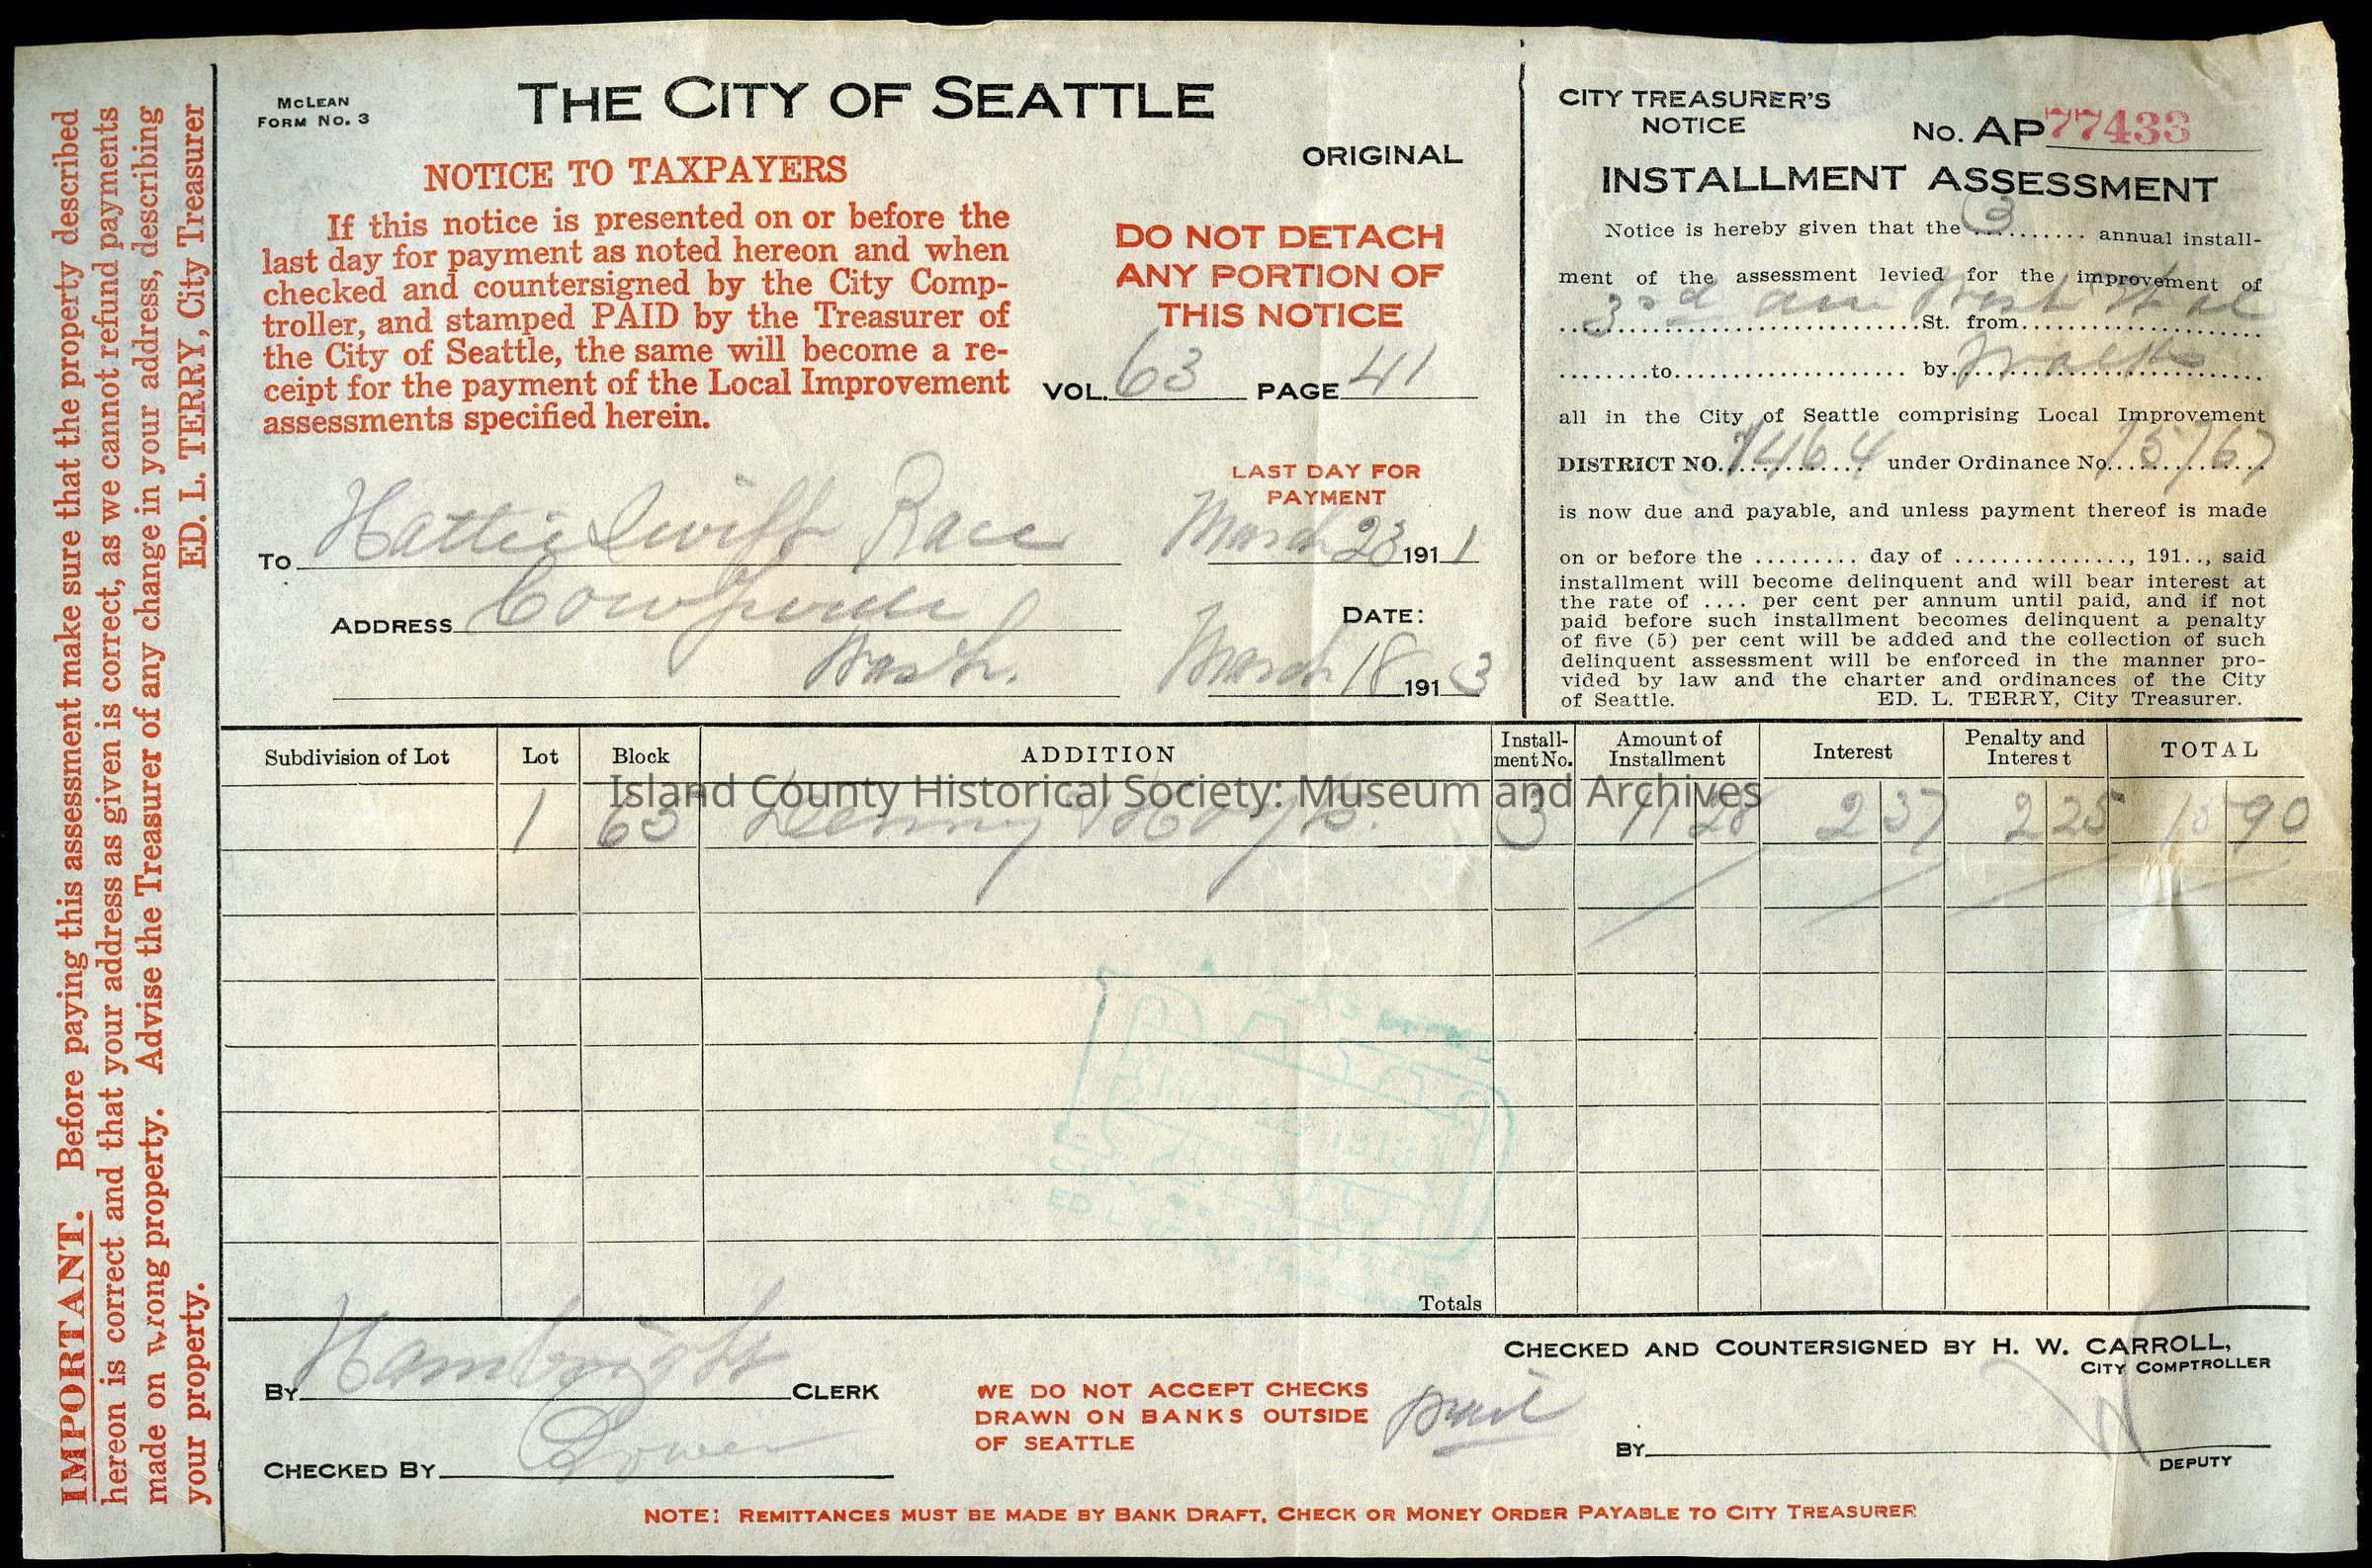 IMPORTANT. Before paying this assessment make sure that the property described
hereon is correct and that your address as given is correct, as we cannot refund payments
made on wrong property. Advise the Treasurer of any change in your address, describing
your property. ED. L. TERRY, City Treasurer
McLEAN
FORM No. 3
THE CITY OF SEATTLE
ORIGINAL
NOTICE TO TAXPAYERS
If this notice is presented on or before the
last day for payment as noted hereon and when
checked and countersigned by the City Comp-
troller, and stamped PAID by the Treasurer of
the City of Seattle, the same will become a re-
ceipt for the payment of the Local Improvement
assessments specified herein.
DO NOT DETACH
ANY PORTION OF
THIS NOTICE
VOL. 63 PAGE 41
LAST DAY FOR
PAYMENT
March 23 1911
TO Hattie Swift Race
ADDRESS
Wash.
DATE:
March 18 1913
CITY TREASURER'S
NOTICE
No. AP 77433
INSTALLMENT ASSESSMENT
Notice is hereby given that the 3 .......... annual install-
ment of the assessment levied for the improvement of
3rd ave West et al St. from
to by Walks
all in the City of Seattle comprising Local Improvement
DISTRICT NO. 1464 under Ordinance No. 15767
is now due and payable, and unless payment thereof is made
on or before the ......... day of ..............., 191.., said
installment will become delinquent and will bear interest at
the rate of .... per cent per annum until paid, and if not
paid before such installment becomes delinquent a penalty
of five (5) per cent will be added and the collection of such
delinquent assessment will be enforced in the manner pro-
vided by law and the charter and ordinances of the City
of Seattle. ED. L. TERRY, City Treasurer.
Subdivision of Lot Lot Block ADDITION Install-ment No. Amount of Installment Interest Penalty and Interest TOTAL
Island County Historical Society: Museum and Archives
1 63 Denny & Hoyts. 3 11 28 2 37 2 25 15 90
Totals
BY Hambright CLERK
CHECKED BY
WE DO NOT ACCEPT CHECKS
DRAWN ON BANKS OUTSIDE
OF SEATTLE
mail
CHECKED AND COUNTERSIGNED BY H. W. CARROLL,
CITY COMPTROLLER
BY
DEPUTY
NOTE: REMITTANCES MUST BE MADE BY BANK DRAFT, CHECK OR MONEY ORDER PAYABLE TO CITY TREASURER